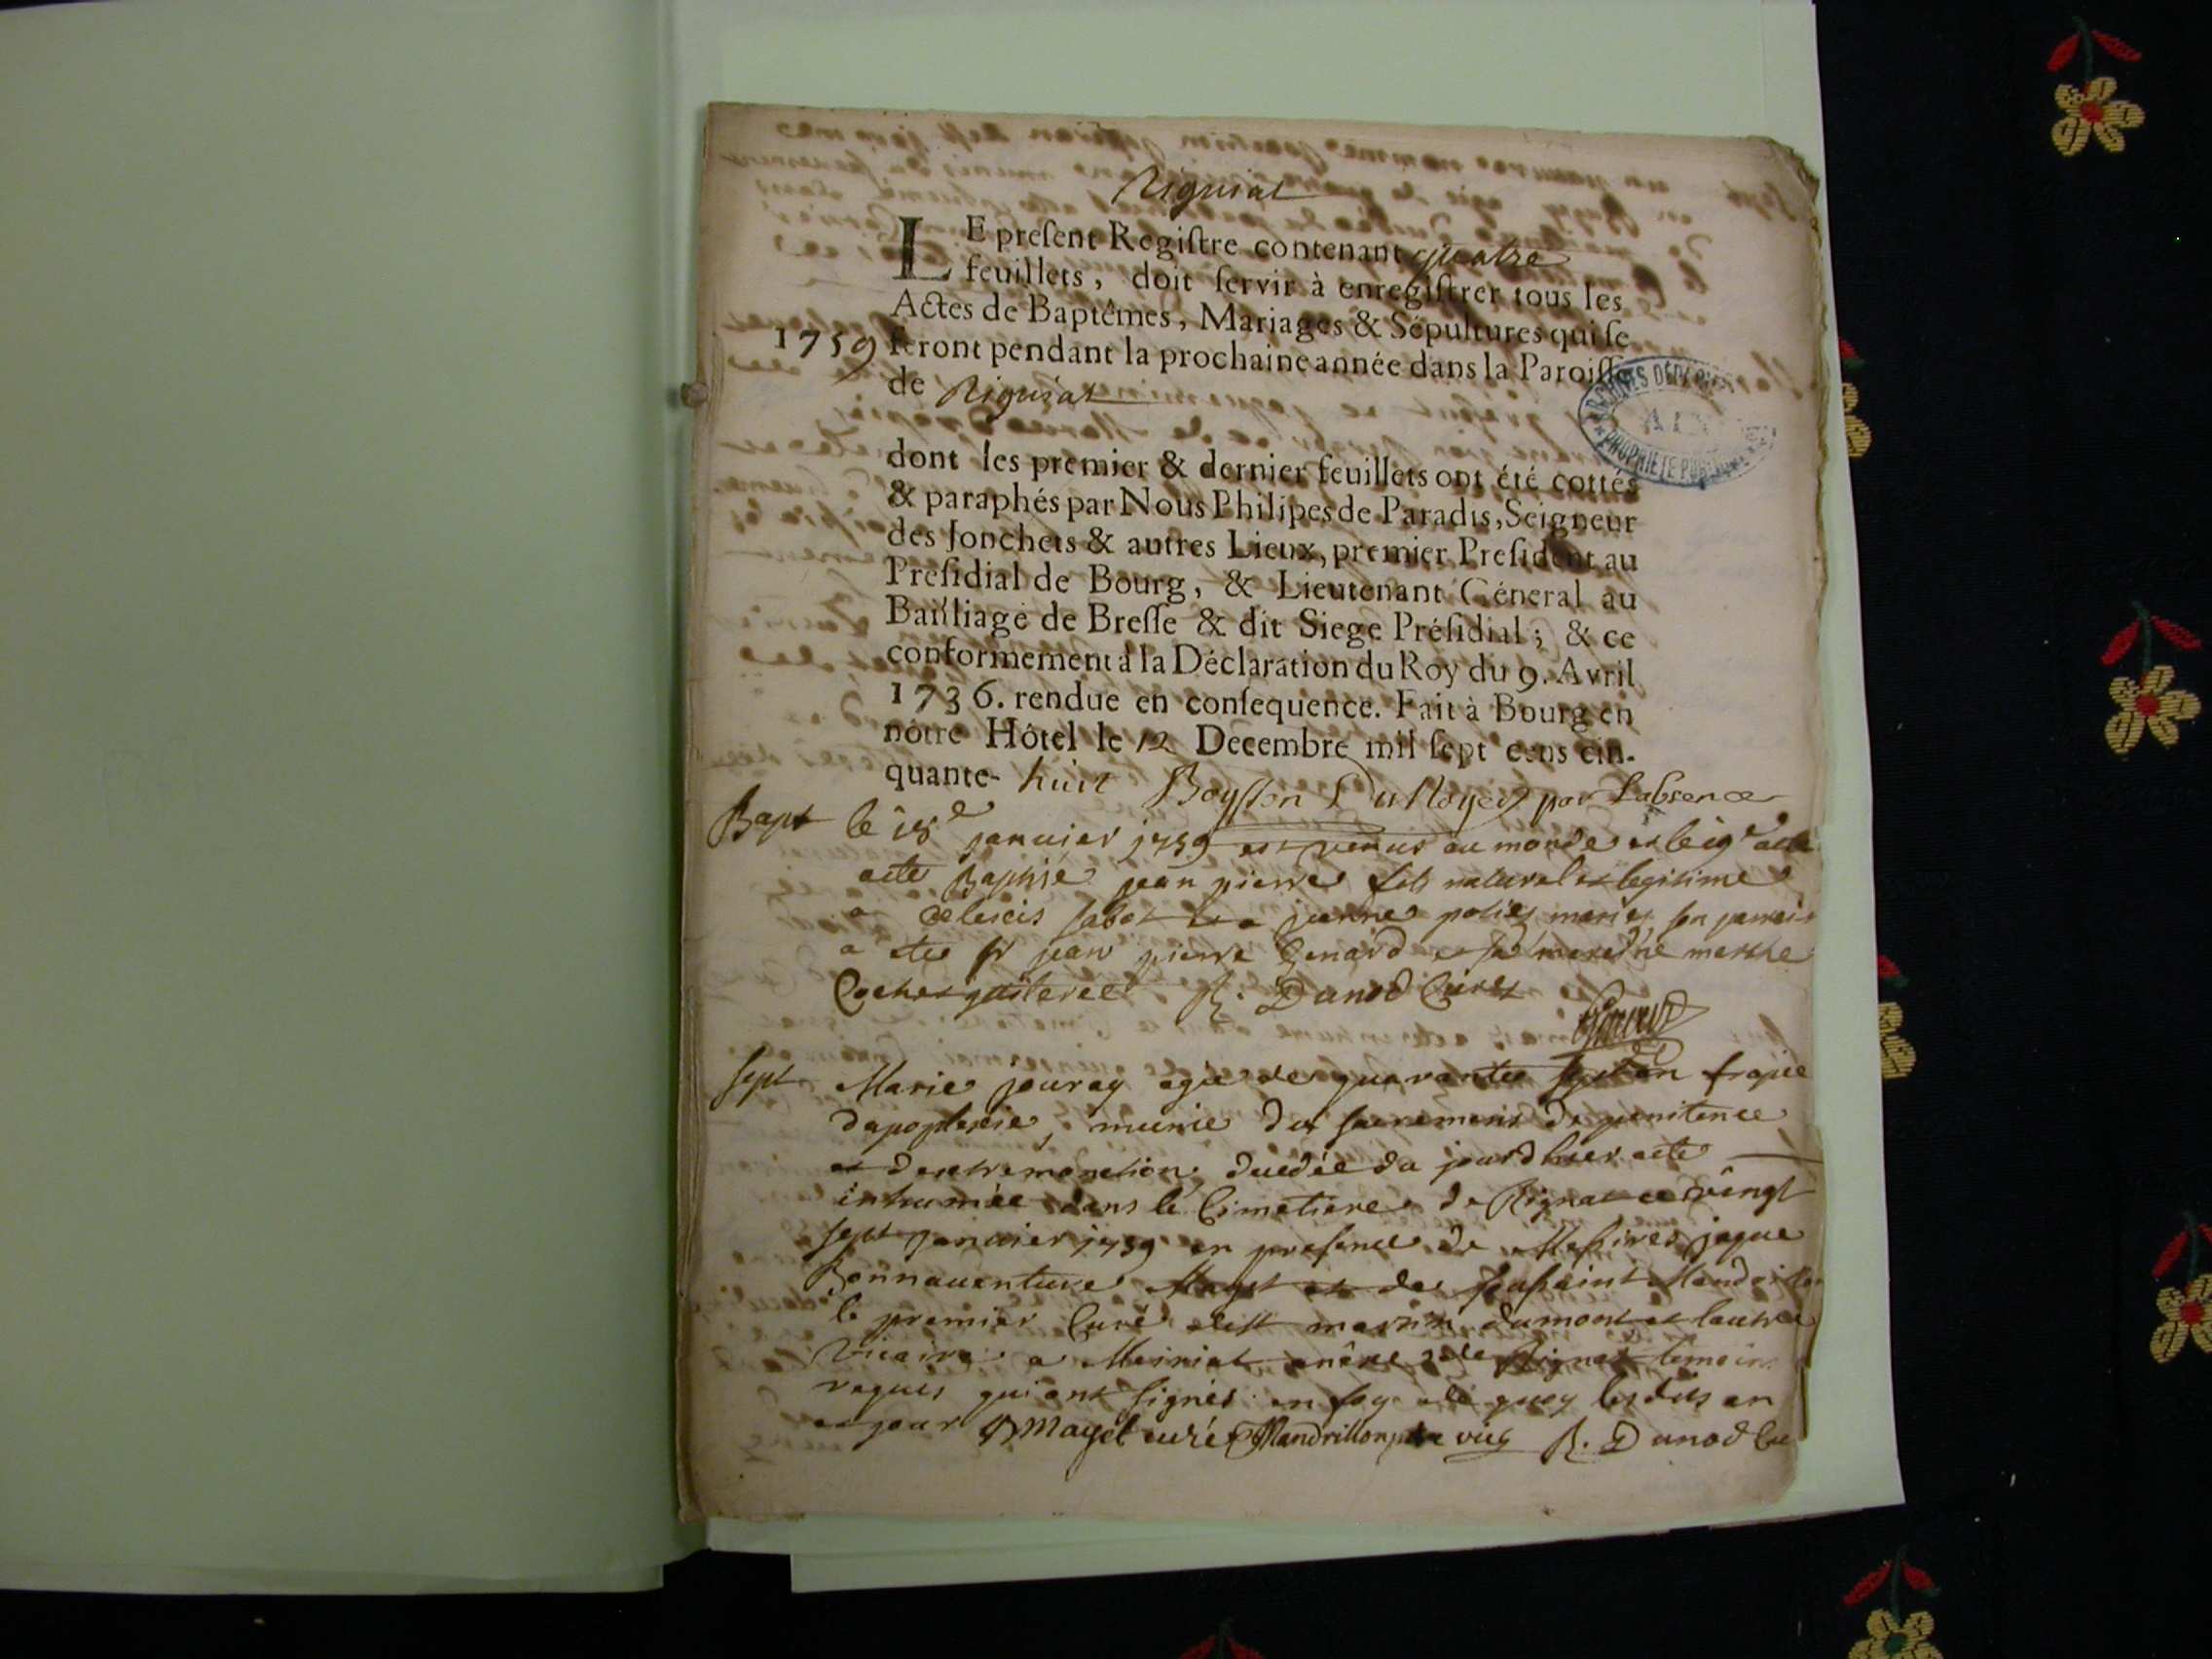 Rigniat
LE preſent Regiſtre contenant quatre
feuillets, doit ſervir à enregiſtrer tous les
Actes de Baptêmes, Mariages & Sépultures qui ſe
1759 feront pendant la prochaine année dans la Paroiſſe
de Rigniat
ARCHIVES DÉP
AIN
PROPRIÉTÉ PUBLIQUE
dont les premier & dernier feuillets ont été cottés
& paraphés par Nous Philipes de Paradis, Seigneur
des Jonchets & autres Lieux, premier Preſident au
Preſidial de Bourg, & Lieutenant Géneral au
Bailliage de Breſſe & dit Siege Préſidial; & ce
conformement à la Déclaration du Roy du 9. Avril
1736. rendue en conſequence. Fait à Bourg en
nôtre Hôtel le 12 Decembre mil ſept cens cin-
quante- huit par L'absence
Bapt le 18e janvier 1759 est venus au monde et le 19e
acte Baptisé jean pierre fils naturel et legitime
a jeanne mariés son parain
a ete sr jean pierre Genard et sa maraine marthe
R. Dunod Curé
sept Marie jouray agée de quarante sept an frapée
dapoplexie, munie du sacremens de penitence
et dextremonction, du jourdhier acte
inhumée dans le Cimetiere de Rignat ce vingt
sept janvier 1759 en presence de Messires jaque
Bonnaventure Mayet et de Mandrillon
le premier Curé dist martin dumont et lautre
Vicaire a Meiriat de Rignat temoins
requis qui ont signés en foy de quoy lesdits an
et jour Mayet curé Mandrillon ptre vic R. Dunod Cu